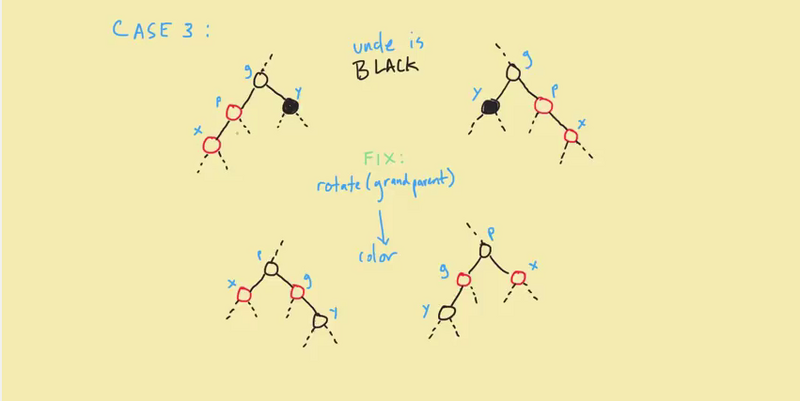 CASE 3 :
uncle is
BLACK
g
p
y
x
g
y
p
x
FIX:
rotate(grandparent)
color
p
x
g
y
p
g
x
y